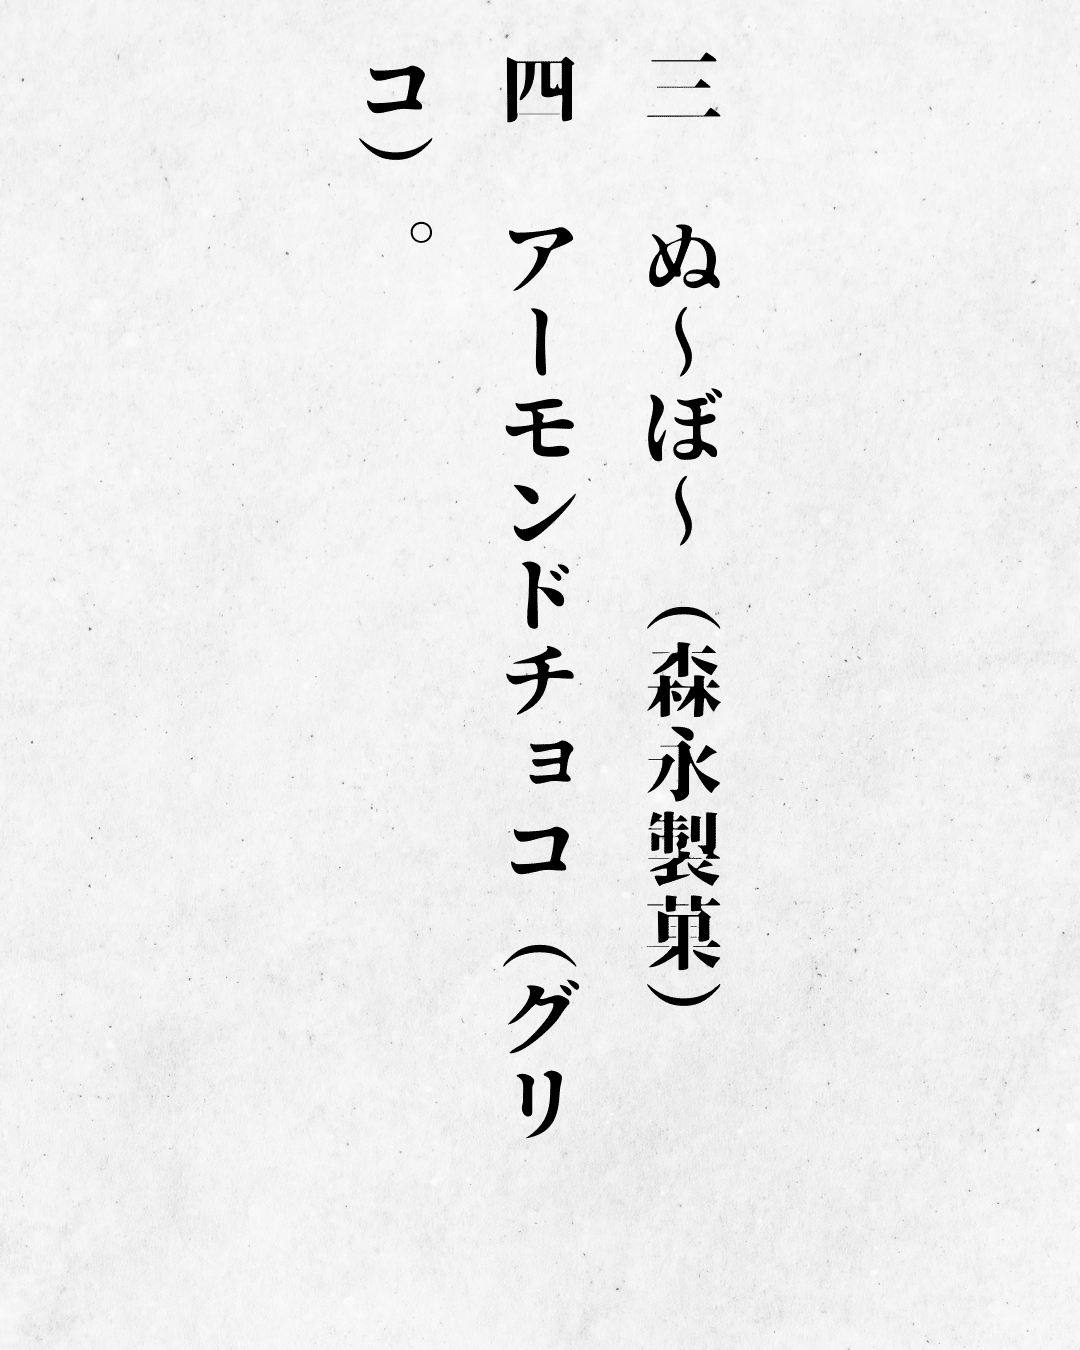 三　ぬ〜ぼ〜（森永製菓）
四　アーモンドチョコ（グリ
コ）。